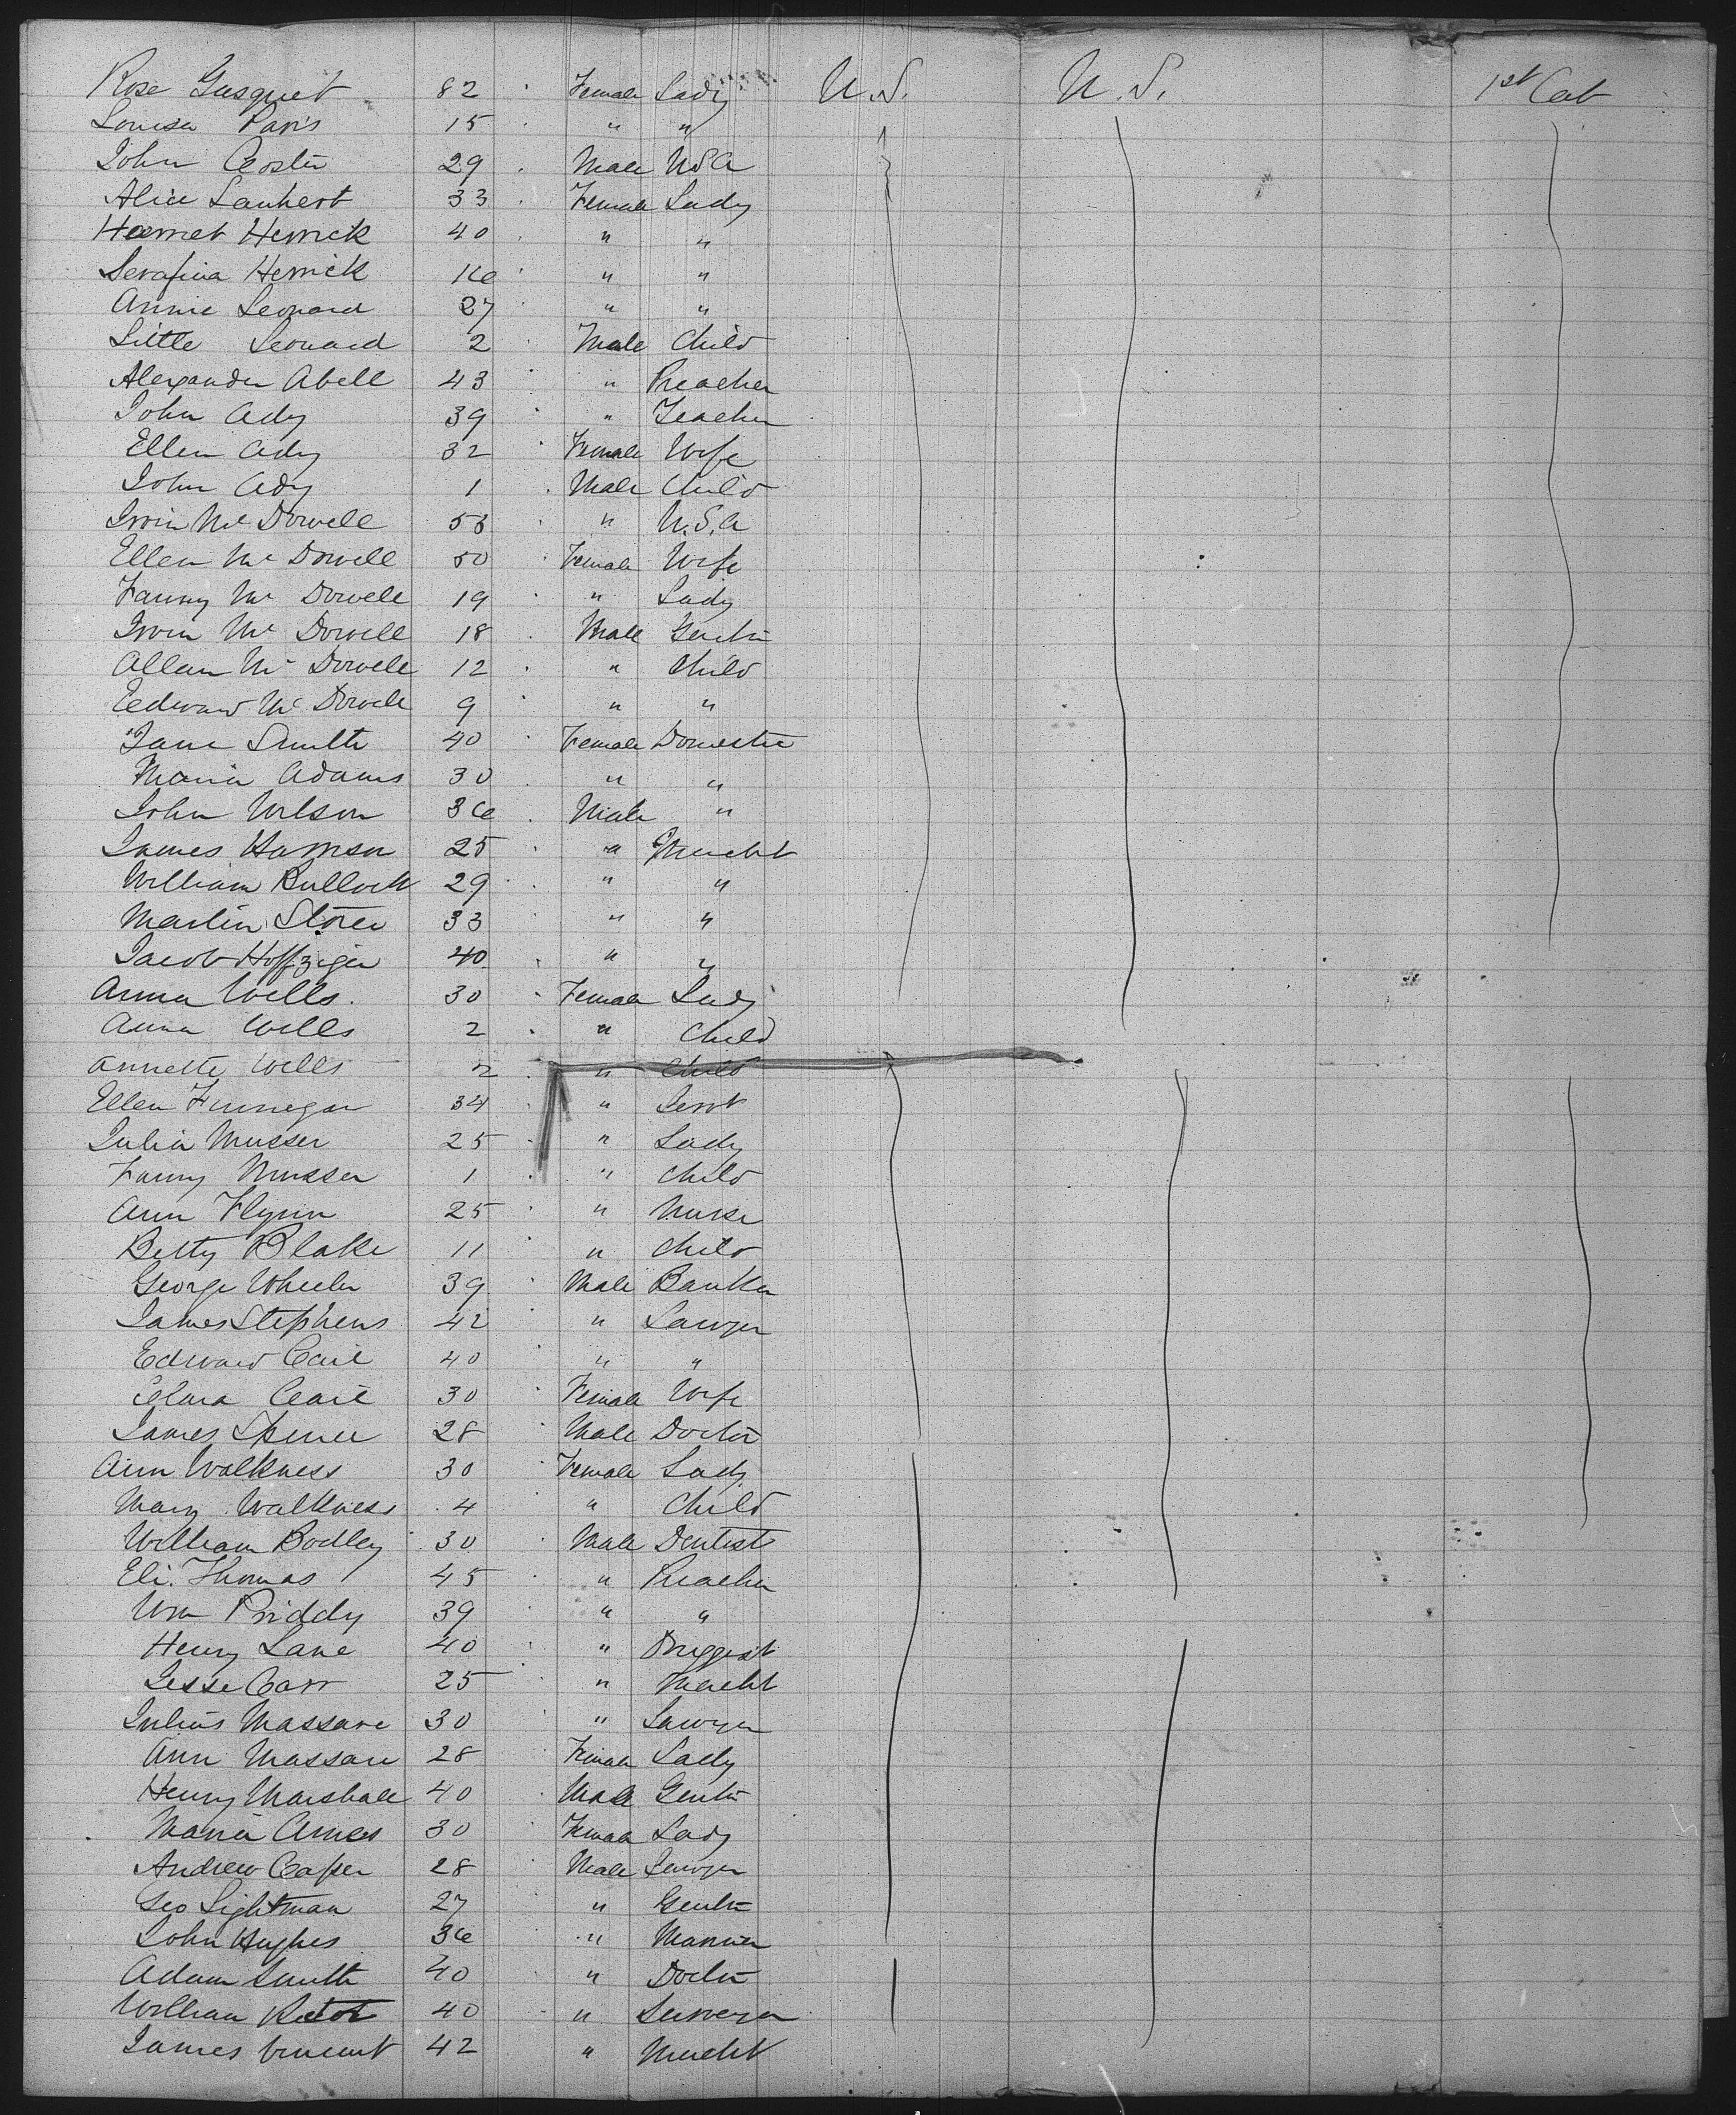 Rose Gusquet 82 Female Lady U.S. U.S. 1st Cab
Louisa Paris 15 " "
John Coster 29 Male USA
Alice Lanhert 33 Female Lady
Harriet Herrick 40 " "
Serafina Herrick 16 " "
Annie Leonard 27 " "
Little Leonard 2 Male Child
Alexander Abell 43 " Preacher
John Ady 39 " Teacher
Ellen Ady 32 Female Wife
John Ady 1 Male Child
Irvin McDowell 53 " U.S.A
Ellen McDowell 50 Female Wife
Fanny McDowell 19 " Lady
Irvin McDowell 18 Male Gentn
Allan McDowell 12 " Child
Eedward McDowell 9 " "
Jane Smith 40 Female Domestic
Maria Adams 30 " "
John Wilson 36 Male "
James Harrison 25 " Mercht
William Bullock 29 " "
Martin Storer 33 " "
Jacob Hoffziger 40 " "
Anna Wells. 30 Female Lady
Anna Wells 2 " Child
Annette Wells 2 " Child
Ellen Finnegan 34 " Servt
Julia Musser 25 " Lady
Fanny Musser 1 " Child
Ann Flynn 25 " Nurse
Betty Blake 11 " Child
George Wheeler 39 Male Banker
James Stephens 42 " Lawyer
Edward Cail 40 " "
Clara Cail 30 Female Wife
James Spence 28 Male Doctor
Ann Walkness 30 Female Lady
Mary Walkness 4 " Child
William Bodley 30 Male Dentist
Eli. Thomas 45 " Preacher
Wm Priddy 39 " "
Henry Lane 40 " Druggist
Jesse Carr 25 " Mercht
Julius Massare 30 " Lawyer
Ann Massare 28 Female Lady
Henry Marshall 40 Male Gentn
Maria Ames 30 Female Lady
Andrew Casper 28 Male Lawyer
Geo Lightman 27 " Gentn
John Hughes 36 " Mariner
Adam Smith 40 " Doctor
William 40 " Lawyer
James Vincent 42 " Mercht